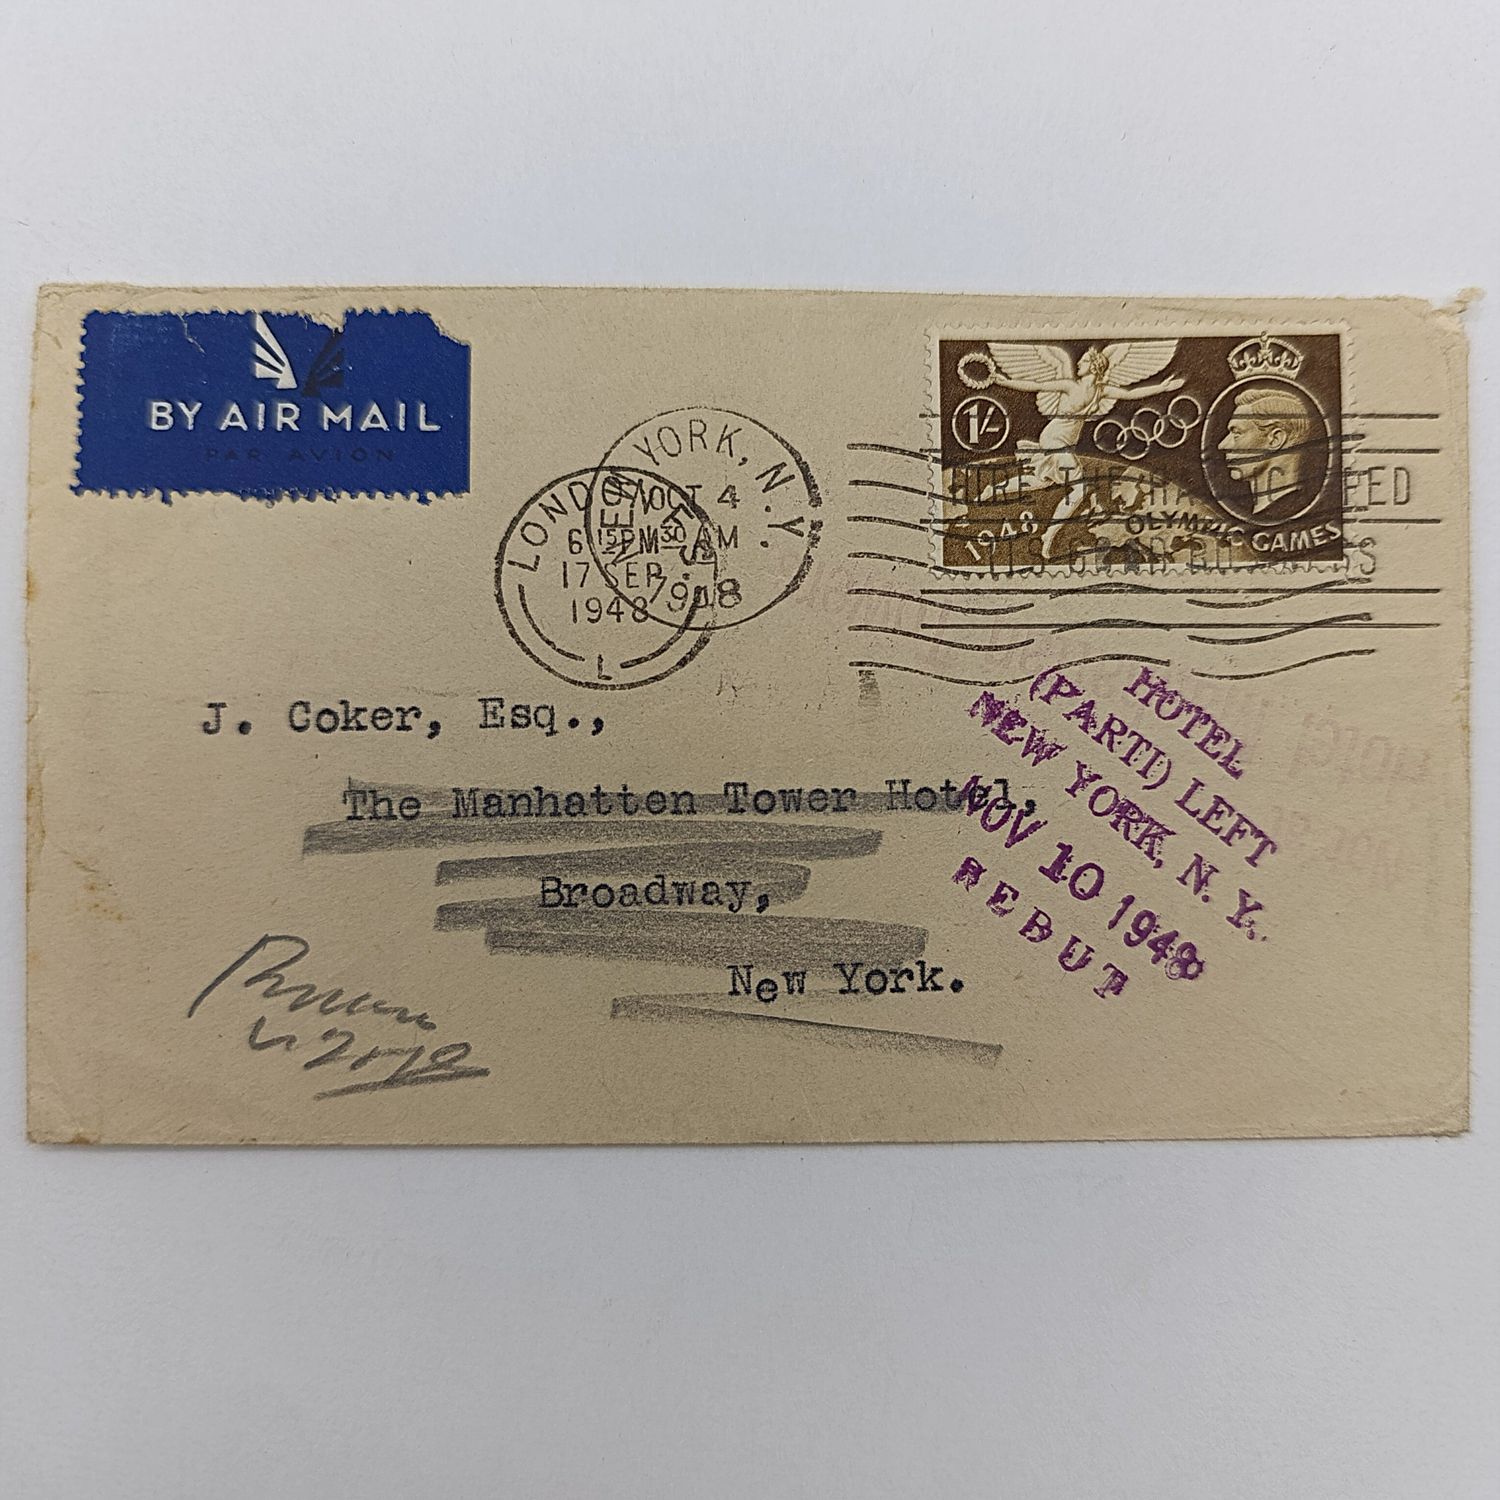 BY AIR MAIL
PAR AVION
NEW YORK, N.Y.
OCT 4
30 AM
1948
LONDON
6 15 PM
17 SEP
1948
L
1/-
1948
OLYMPIC GAMES
HIRE THE HANDICAPPED
IT'S GOOD BUSINESS
J. Coker, Esq.,
The Manhatten Tower Hotel,
Broadway,
New York.
HOTEL
(PARTI) LEFT
NEW YORK, N. Y.
NOV 10 1948
REBUT